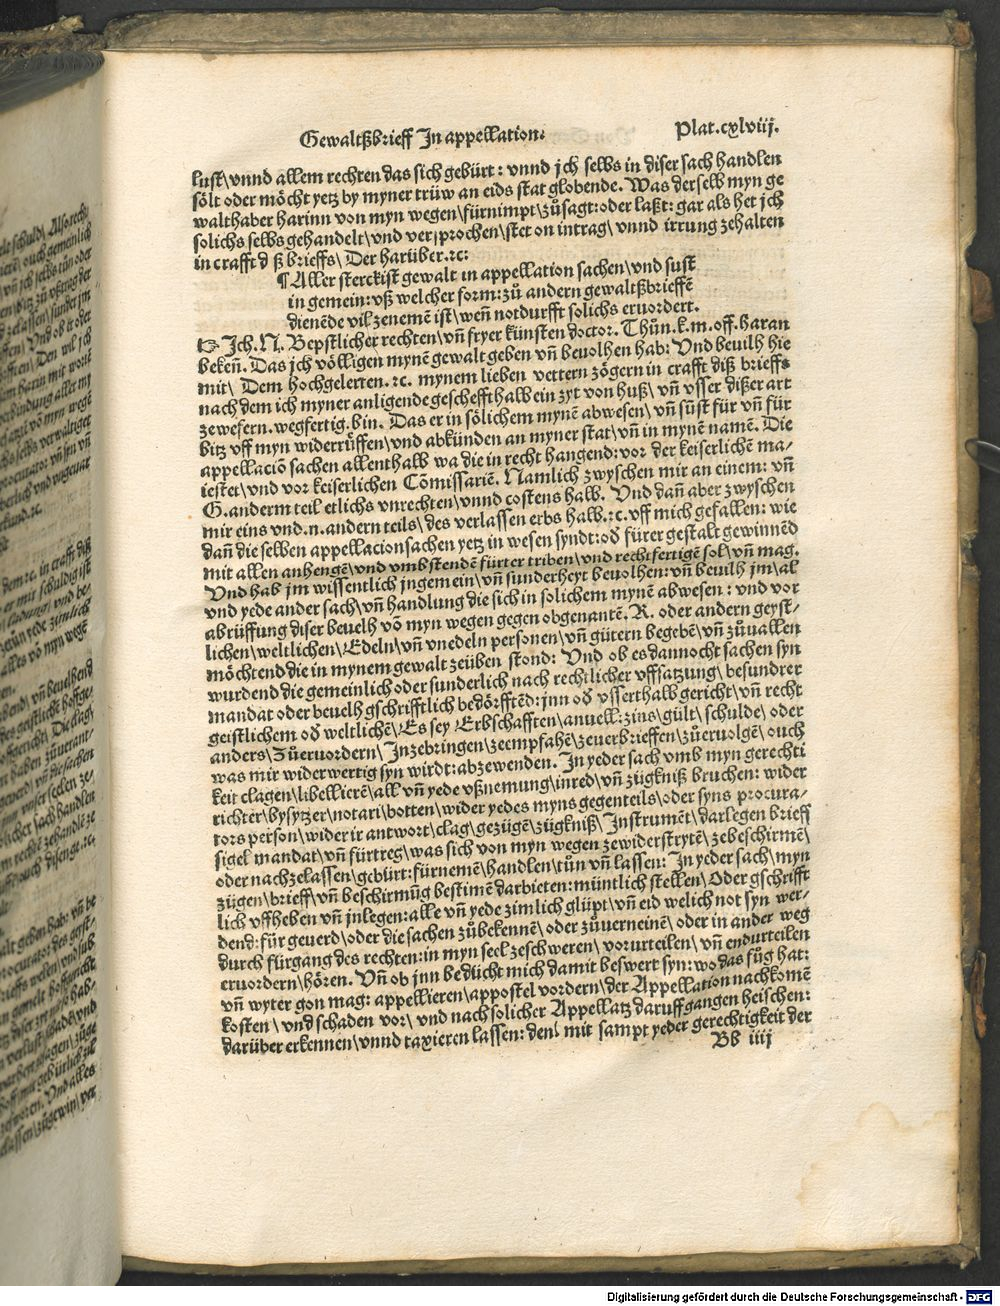 Gewaltßbrieff In appellation:
Plat.cxlviij.
lust\ vnnd allem rechten das sich gebürt: vnnd jch selbs in diser sach handlen
sölt oder möcht yetz by myner trüw an eids stat globende. Was derselb myn ge
walthaber harinn von myn wegen\ fürnimpt\ zůsagt: oder laßt: gar als het jch
solichs selbs gehandelt\ vnd versprochen\ stet on intrag\ vnnd irrung zehalten
in crafft d ß brieffs\ Der harüber.⁊c:
¶ Aller sterckist gewalt in appellation sachen\ vnd sust
in gemein: vß welcher form: zů andern gewaltßbrieffē
dienēde vil zenemē ist\ weñ notdurfft solichs eruordert.
☞ Jch. N. Bepstlicher rechten\ vñ fryer künsten doctor. Thůn.k.m.off.haran
bekeñ. Das jch völligen mynē gewalt geben vñ beuolhen hab: Vnd beuilh hie
mit\ Dem hochgelerten.⁊c. mynem lieben vettern zögern in crafft diß brieffs
nach dem ich myner anligende geschefft halb ein zyt von huß\ vñ vsser dißer art
ze wefern. wegfertig. bin. Das er in sölichem mynē abwesen\ vñ süst für vñ für
bitz vff myn widerrüffen\ vnd abkünden an myner stat\ vñ in mynē namē. Die
appellaciō sachen allenthalb wa die in recht hangend: vor der keiserlichē ma⸗
iestet\ vnd vor keiserlichen Cōmissariē. Namlich zwyschen mir an einem: vñ
G. anderm teil etlichs vnrechten\ vnnd costens halb. Vnd dañ aber zwyschen
mir eins vnd.n.andern teils\ des verlassen erbs halb.⁊c. vff mich gefallen: wie
dañ die selben appellacion sachen yetz in wesen syndt: od̄ fürer gestalt gewinnēd
mit allen anhengē\ vnd vmbstendē fürter triben\ vnd rechtfertigē sol\ vñ mag.
Vnd hab jm wissentlich jngemein\ vñ sunderheyt beuolhen: vñ beuilh jm\ al
vnd yede ander sach\ vñ handlung die sich in solichem mynē abwesen: vnd vor
abrüffung diser beuelh vō myn wegen gegen obgenantē. R. oder andern geyst⸗
lichen\ weltlichen\ Edeln\ vñ vnedeln personen\ vñ gütern begebē\ vñ zůuallen
möchtend die in mynem gewalt zeüben stond: Vnd ob es dannocht sachen syn
wurdend die gemeinlich oder sunderlich nach rechtlicher vffsatzung\ besundrer
mandat oder beuelh gschrifftlich bedörfftēd: jnn od̄ vsserthalb gericht\ vñ recht
geistlichem od̄ weltlichē\ Es sey Erbschafften\ anuell: zins\ gült\ schulde\ oder
anders\ Zůeruordern\ Jnzebringen\ zeempfahē\ zeuerbrieffen\ zůeruolgē\ ouch
was mir widerwertig syn wirdt: abzewenden. Jn yeder sach vmb myn gerechti
keit clagen\ libellierē\ all vñ yede vßnemung\ inred\ vñ zügkniß bruchen: wider
richter\ bysytzer\ notari\ botten\ wider yedes myns gegenteils\ oder syns procura⸗
tors person\ wider ir antwort\ clag\ gezügē\ zügkniß\ Jnstrumēt\ darlegen brieff
sigel mandat\ vñ fürtreg\ was sich von myn wegen zewiderstrytē\ zebeschirmē\
oder nachzelassen\ gebürt: fürnemē\ handlen\ tůn vñ lassen: Jn yeder sach\ myn
zügen\ brieff\ vñ beschirmūg bestimē darbieten: müntlich stellen\ Oder gschrifft
lich vffheben vñ inlegen: alle vñ yede zimlich glüpt\ vñ eid welich not syn wer⸗
dend: für geuerd\ oder die sachen zůbekennē\ oder zůuerneinē\ oder in ander weg
durch fürgang des rechten: in myn seel zeschweren\ vorurteilen\ vñ endurteilen
eruordern\ hören. Vñ ob jnn bedücht mich damit beswert syn: wo das fůg hat:
vñ wyter gon mag: appellieren\ appostel vordern\ der Appellation nachkomē
kosten\ vnd schaden vor\ vnd nach solicher Appellatz daruffgangen heischen:
darüber erkennen\ vnnd taxieren lassen: den\ mit sampt yeder gerechtigkeit der
Bb iiij
Digitalisierung gefördert durch die Deutsche Forschungsgemeinschaft - DFG